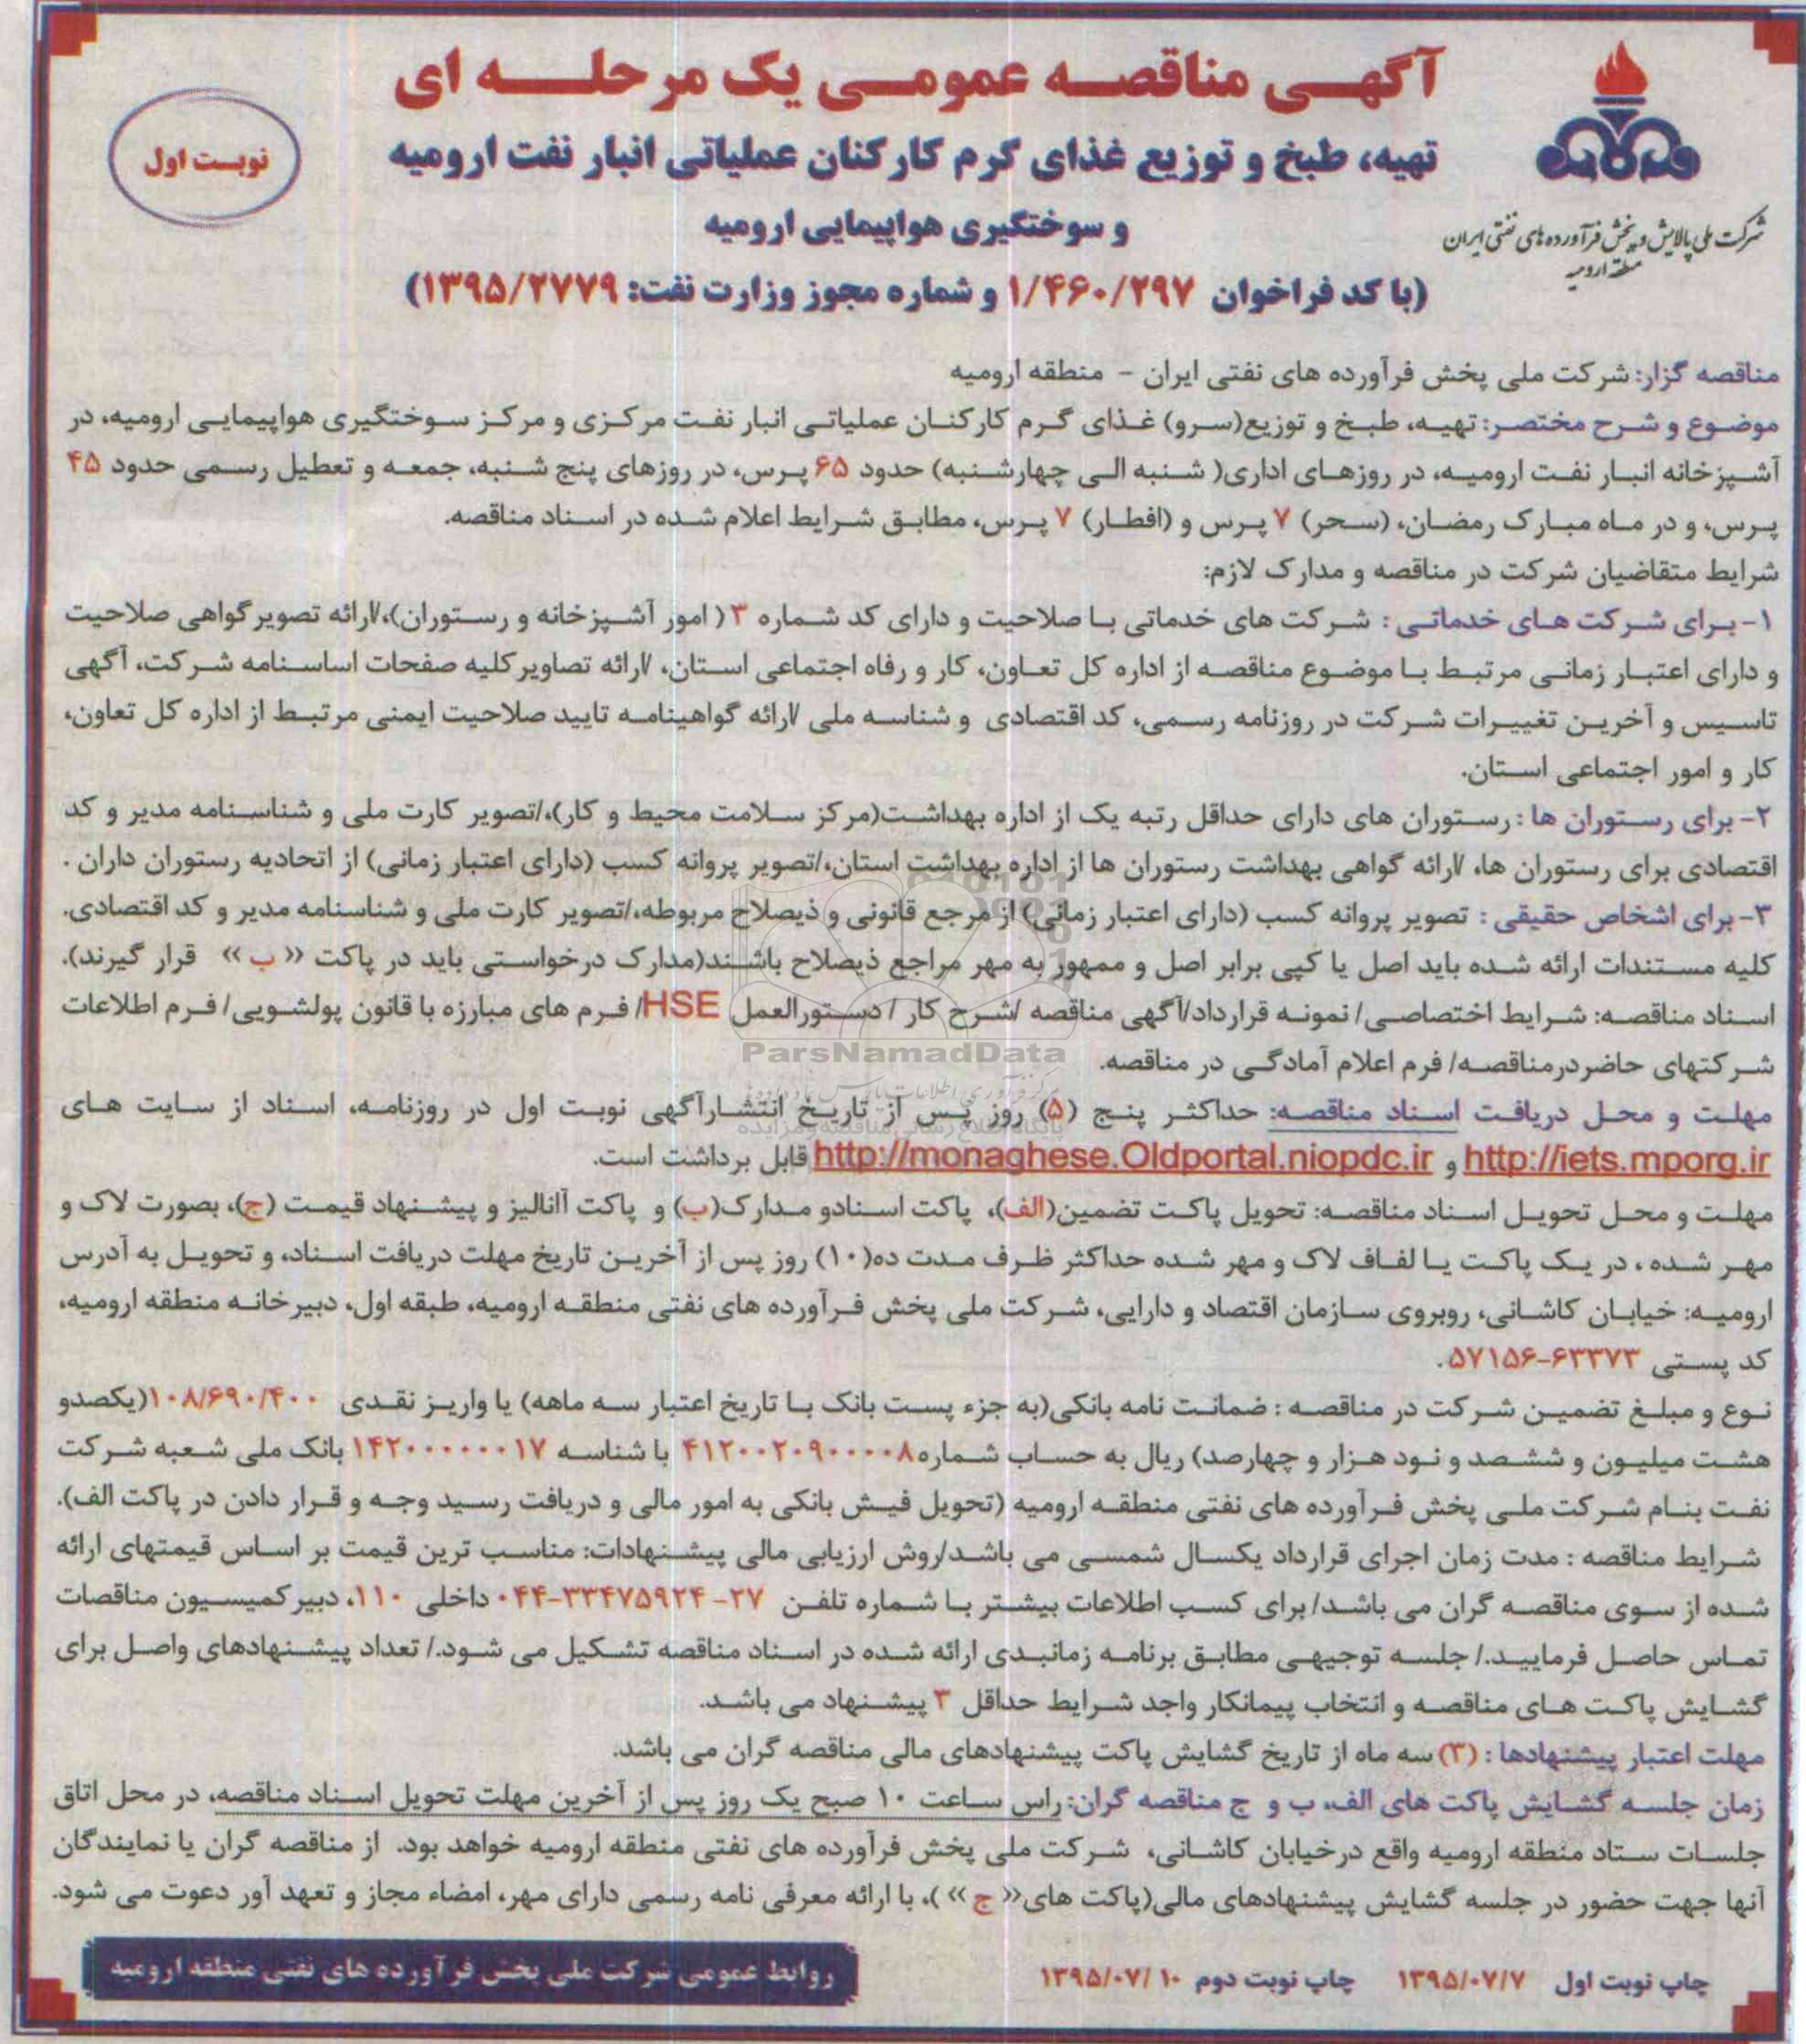 آگهی مناقصه عمومی یک مرحله ای
تهیه، طبخ و توزیع غذای گرم کارکنان عملیاتی انبار نفت ارومیه
و سوختگیری هواپیمایی ارومیه
(با کد فراخوان ۱/۴۶۰/۲۹۷ و شماره مجوز وزارت نفت: ۱۳۹۵/۲۷۷۹)
نوبت اول
شرکت ملی پالایش و پخش فرآورده های نفتی ایران
منطقه ارومیه
مناقصه گزار: شرکت ملی پخش فرآورده های نفتی ایران - منطقه ارومیه
موضوع و شرح مختصر: تهیه، طبخ و توزیع(سرو) غذای گرم کارکنان عملیاتی انبار نفت مرکزی و مرکز سوختگیری هواپیمایی ارومیه، در
آشپزخانه انبار نفت ارومیه، در روزهای اداری( شنبه الی چهارشنبه) حدود ۶۵ پرس، در روزهای پنج شنبه، جمعه و تعطیل رسمی حدود ۴۵
پرس، و در ماه مبارک رمضان، (سحر) ۷ پرس و (افطار) ۷ پرس، مطابق شرایط اعلام شده در اسناد مناقصه.
شرایط متقاضیان شرکت در مناقصه و مدارک لازم:
۱- برای شرکت های خدماتی : شرکت های خدماتی با صلاحیت و دارای کد شماره ۳ ( امور آشپزخانه و رستوران)،/ارائه تصویر گواهی صلاحیت
و دارای اعتبار زمانی مرتبط با موضوع مناقصه از اداره کل تعاون، کار و رفاه اجتماعی استان، /ارائه تصاویر کلیه صفحات اساسنامه شرکت، آگهی
تاسیس و آخرین تغییرات شرکت در روزنامه رسمی، کد اقتصادی و شناسه ملی /ارائه گواهینامه تایید صلاحیت ایمنی مرتبط از اداره کل تعاون،
کار و امور اجتماعی استان.
۲- برای رستوران ها : رستوران های دارای حداقل رتبه یک از اداره بهداشت(مرکز سلامت محیط و کار)،/تصویر کارت ملی و شناسنامه مدیر و کد
اقتصادی برای رستوران ها، /ارائه گواهی بهداشت رستوران ها از اداره بهداشت استان،/تصویر پروانه کسب (دارای اعتبار زمانی) از اتحادیه رستوران داران .
۳- برای اشخاص حقیقی : تصویر پروانه کسب (دارای اعتبار زمانی) از مرجع قانونی و ذیصلاح مربوطه،/تصویر کارت ملی و شناسنامه مدیر و کد اقتصادی.
کلیه مستندات ارائه شده باید اصل یا کپی برابر اصل و ممهور به مهر مراجع ذیصلاح باشند(مدارک درخواستی باید در پاکت « ب » قرار گیرند).
اسناد مناقصه: شرایط اختصاصی/ نمونه قرارداد/آگهی مناقصه /شرح کار / دستورالعمل HSE/ فرم های مبارزه با قانون پولشویی/ فرم اطلاعات
شرکتهای حاضردرمناقصه/ فرم اعلام آمادگی در مناقصه.
ParsNamadData
مهلت و محل دریافت اسناد مناقصه: حداکثر پنج (۵) روز پس از تاریخ انتشارآگهی نوبت اول در روزنامه، اسناد از سایت های
http://iets.mporg.ir و http://monaghese.Oldportal.niopdc.ir قابل برداشت است.
مهلت و محل تحویل اسناد مناقصه: تحویل پاکت تضمین(الف)، پاکت اسنادو مدارک(ب) و پاکت آنالیز و پیشنهاد قیمت (ج)، بصورت لاک و
مهر شده ، در یک پاکت یا لفاف لاک و مهر شده حداکثر ظرف مدت ده(۱۰) روز پس از آخرین تاریخ مهلت دریافت اسناد، و تحویل به آدرس
ارومیه: خیابان کاشانی، روبروی سازمان اقتصاد و دارایی، شرکت ملی پخش فرآورده های نفتی منطقه ارومیه، طبقه اول، دبیرخانه منطقه ارومیه،
کد پستی ۶۳۳۷۳-۵۷۱۵۶.
نوع و مبلغ تضمین شرکت در مناقصه : ضمانت نامه بانکی(به جزء پست بانک با تاریخ اعتبار سه ماهه) یا واریز نقدی ۱۰۸/۶۹۰/۴۰۰(یکصدو
هشت میلیون و ششصد و نود هزار و چهارصد) ریال به حساب شماره۴۱۲۰۰۲۰۹۰۰۰۰۸ با شناسه ۱۴۲۰۰۰۰۰۰۰۱۷ بانک ملی شعبه شرکت
نفت بنام شرکت ملی پخش فرآورده های نفتی منطقه ارومیه (تحویل فیش بانکی به امور مالی و دریافت رسید وجه و قرار دادن در پاکت الف).
شرایط مناقصه : مدت زمان اجرای قرارداد یکسال شمسی می باشد/روش ارزیابی مالی پیشنهادات: مناسب ترین قیمت بر اساس قیمتهای ارائه
شده از سوی مناقصه گران می باشد/ برای کسب اطلاعات بیشتر با شماره تلفن ۲۷- ۳۳۴۷۵۹۲۴-۰۴۴ داخلی ۱۱۰، دبیر کمیسیون مناقصات
تماس حاصل فرمایید./ جلسه توجیهی مطابق برنامه زمانبدی ارائه شده در اسناد مناقصه تشکیل می شود./ تعداد پیشنهادهای واصل برای
گشایش پاکت های مناقصه و انتخاب پیمانکار واجد شرایط حداقل ۳ پیشنهاد می باشد.
مهلت اعتبار پیشنهادها : (۳) سه ماه از تاریخ گشایش پاکت پیشنهادهای مالی مناقصه گران می باشد.
زمان جلسه گشایش پاکت های الف، ب و ج مناقصه گران: راس ساعت ۱۰ صبح یک روز پس از آخرین مهلت تحویل اسناد مناقصه، در محل اتاق
جلسات ستاد منطقه ارومیه واقع درخیابان کاشانی، شرکت ملی پخش فرآورده های نفتی منطقه ارومیه خواهد بود. از مناقصه گران یا نمایندگان
آنها جهت حضور در جلسه گشایش پیشنهادهای مالی(پاکت های« ج » )، با ارائه معرفی نامه رسمی دارای مهر، امضاء مجاز و تعهد آور دعوت می شود.
چاپ نوبت اول ۱۳۹۵/۰۷/۷ چاپ نوبت دوم ۱۳۹۵/۰۷/۱۰
روابط عمومی شرکت ملی پخش فرآورده های نفتی منطقه ارومیه